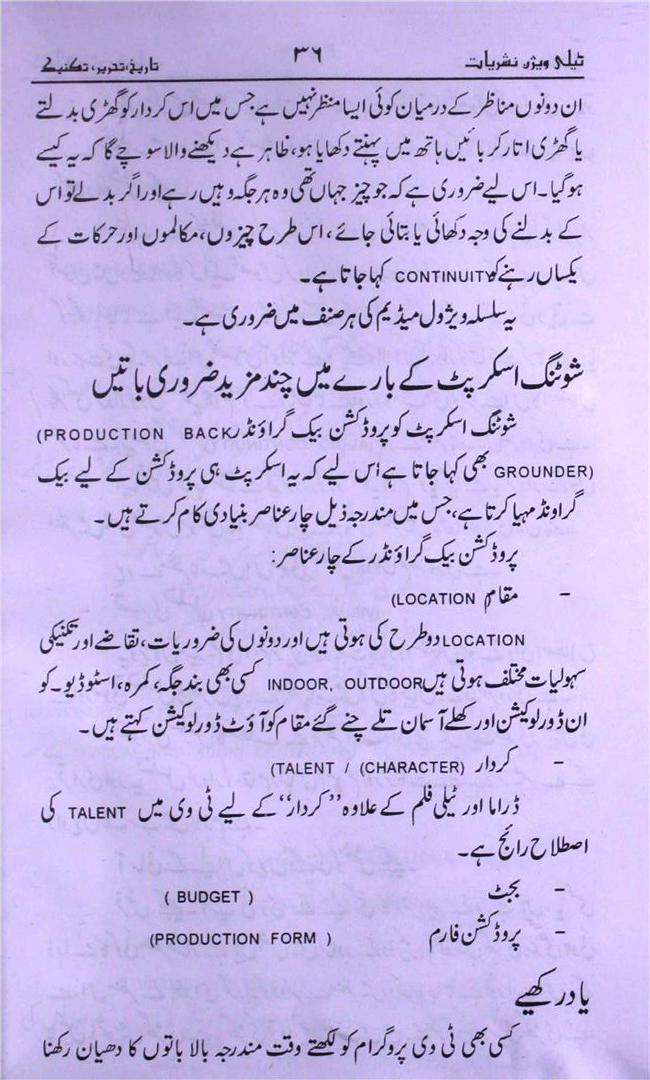 ٹیلی ویژن نشریات ۳۶ تاریخ، تحریر، تکنیک
ان دونوں مناظر کے درمیان کوئی ایسا منظر نہیں ہے جس میں اس کردار کو گھڑی بدلتے
یا گھڑی اتار کر بائیں ہاتھ میں پہنتے دکھایا ہو، ظاہر ہے دیکھنے والا سوچے گا کہ یہ کیسے
ہوگیا۔ اس لیے ضروری ہے کہ جو چیز جہاں تھی وہ ہر جگہ وہیں رہے اور اگر بدلے تو اس
کے بدلنے کی وجہ دکھائی یا بتائی جائے، اس طرح چیزوں، مکالموں اور حرکات کے
یکساں رہنے کو CONTINUITY کہا جاتا ہے۔
یہ سلسلہ ویژول میڈیم کی ہر صنف میں ضروری ہے۔
شوٹنگ اسکرپٹ کے بارے میں چند مزید ضروری باتیں
شوٹنگ اسکرپٹ کو پروڈکشن بیک گراؤنڈر (PRODUCTION BACK
GROUNDER) بھی کہا جاتا ہے اس لیے کہ یہ اسکرپٹ ہی پروڈکشن کے لیے بیک
گراونڈ مہیا کرتا ہے، جس میں مندرجہ ذیل چار عناصر بنیادی کام کرتے ہیں۔
پروڈکشن بیک گراؤنڈر کے چار عناصر:
- مقام (LOCATION)
LOCATION دو طرح کی ہوتی ہیں اور دونوں کی ضروریات، تقاضے اور تکنیکی
سہولیات مختلف ہوتی ہیں INDOOR, OUTDOOR کسی بھی بند جگہ، کمرہ، اسٹوڈیو۔ کو
ان ڈور لوکیشن اور کھلے آسمان تلے چنے گئے مقام کو آؤٹ ڈور لوکیشن کہتے ہیں۔
- کردار (TALENT / (CHARACTER)
ڈراما اور ٹیلی فلم کے علاوہ ”کردار“ کے لیے ٹی وی میں TALENT کی
اصطلاح رائج ہے۔
- بجٹ ( BUDGET )
- پروڈکشن فارم (PRODUCTION FORM )
یاد رکھیے
کسی بھی ٹی وی پروگرام کو لکھتے وقت مندرجہ بالا باتوں کا دھیان رکھنا